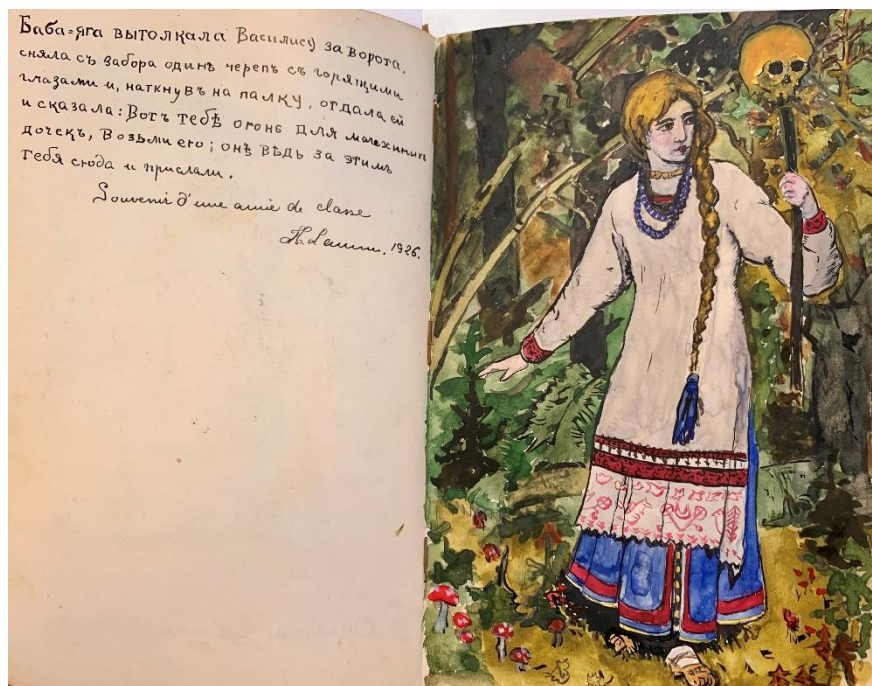 Баба-яга вытолкала Василису за ворота,
сняла съ забора одинъ черепъ съ горящими
глазами и, наткнувъ на палку, отдала ей
и сказала: Вотъ тебѣ огонь для мачехиныхъ
дочекъ, возьми его; онѣ вѣдь за этимъ
тебя сюда и прислали.
Souvenir d'une amie de classe
1926.